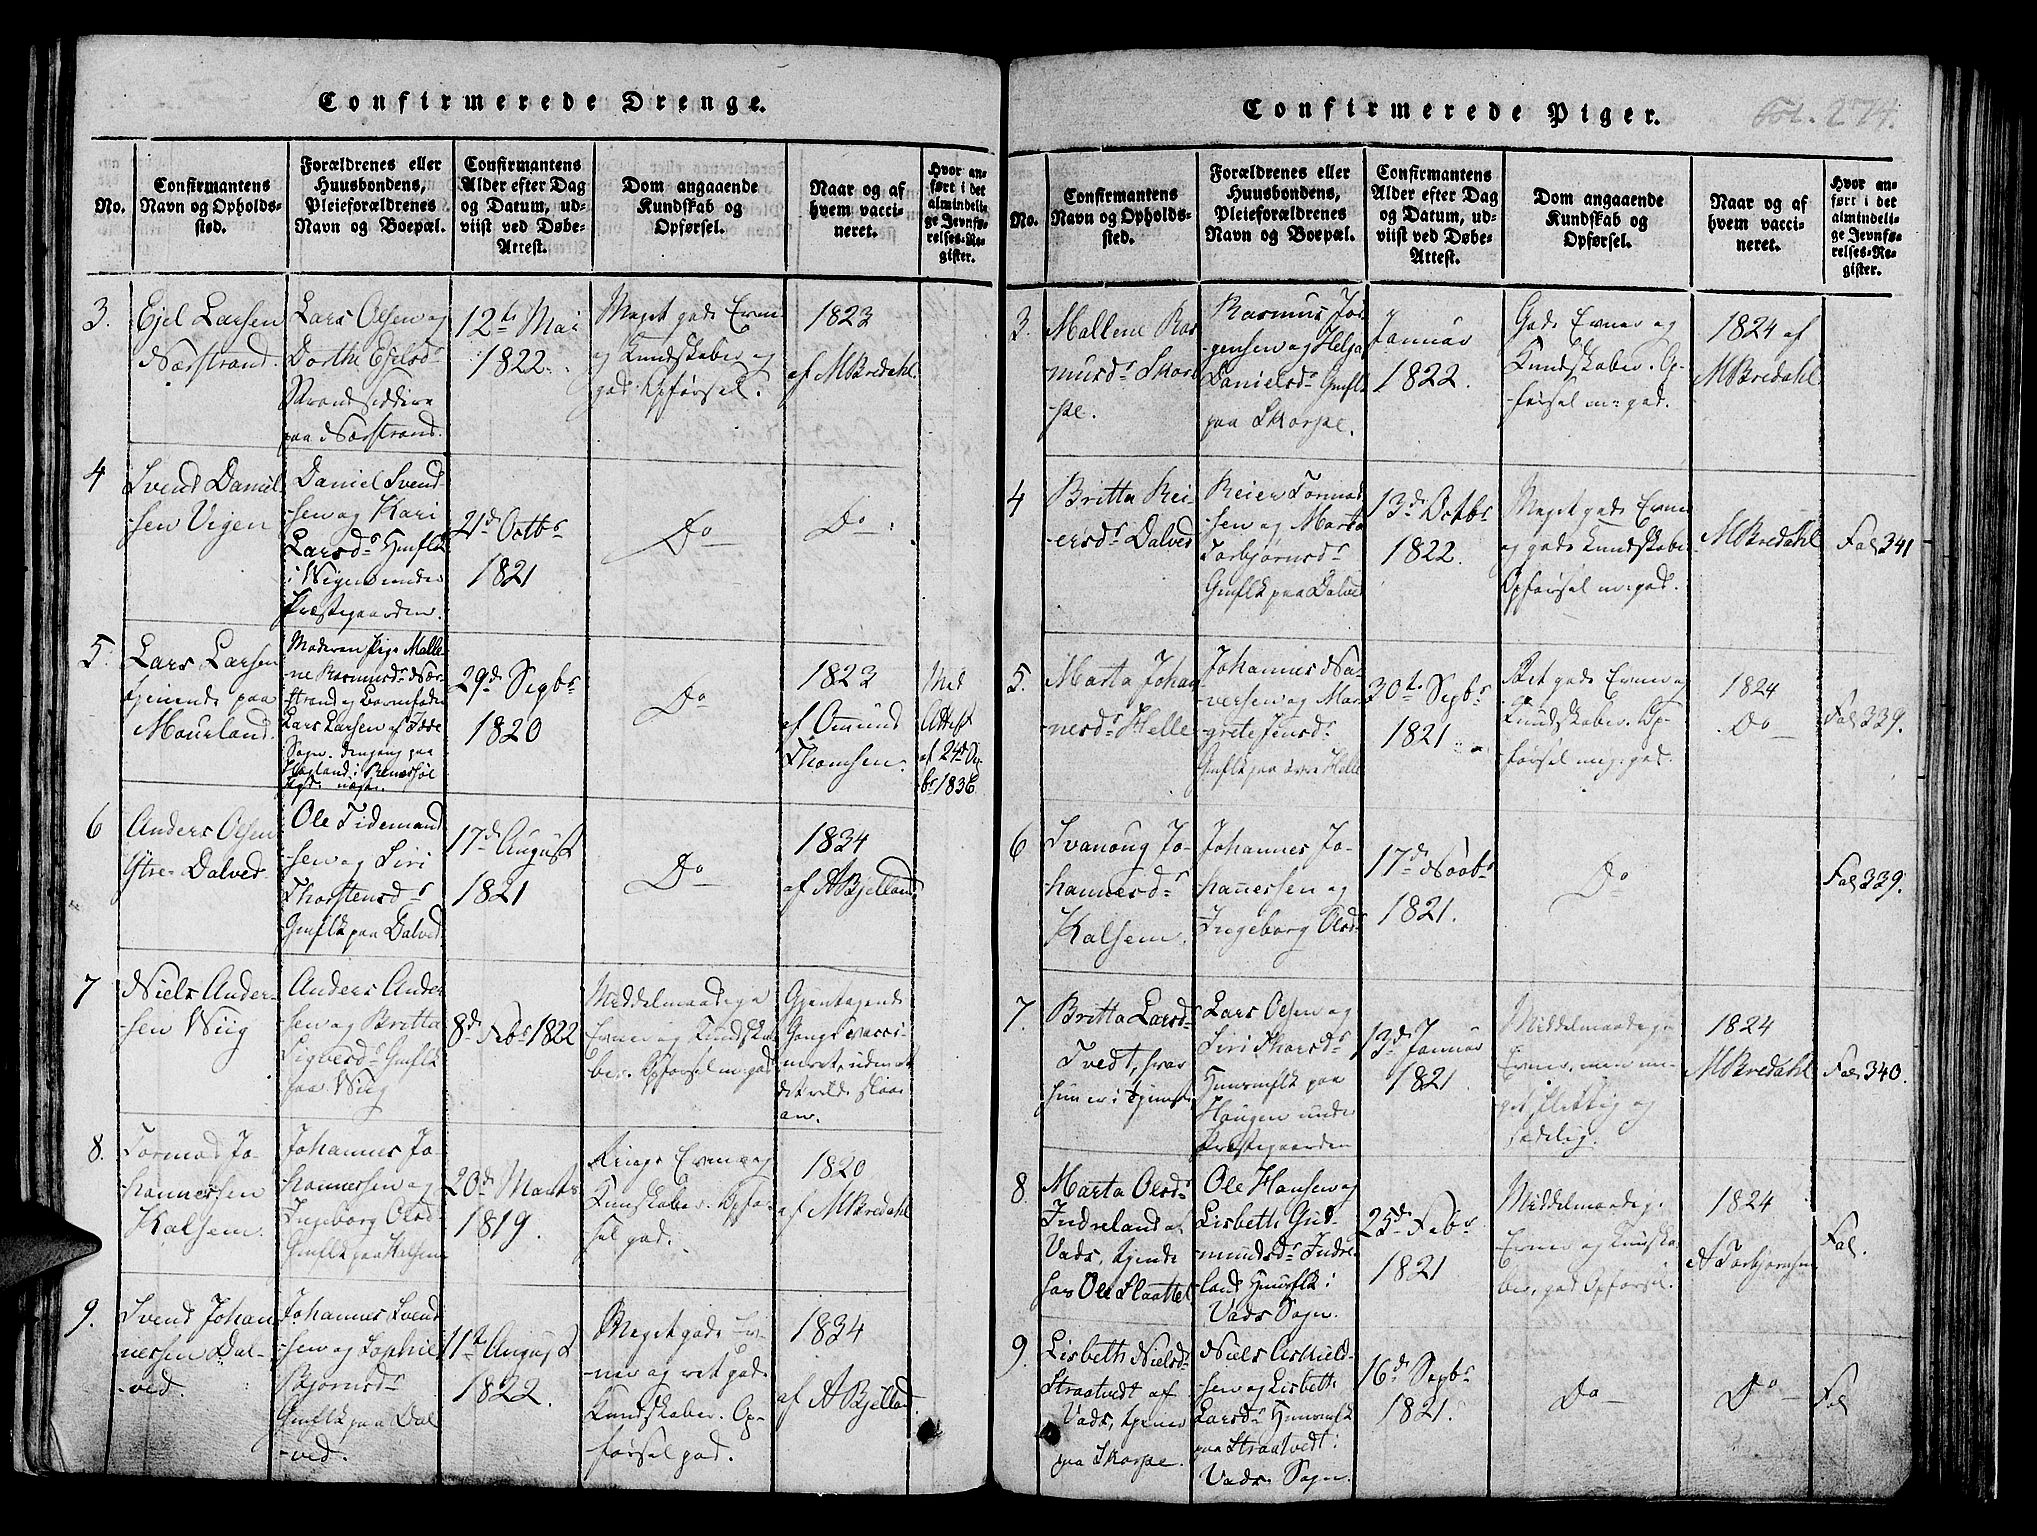 Confirmerede Drenge.
No.
Confirmantens
Navn og Opholds-
sted.
Forældrenes eller
Huusbondens,
Pleieforældrenes
Navn og Boepæl.
Confirmantens
Alder efter Dag
og Datum, ud-
viist ved Døbe-
Attest.
Dom angaaende
Kundskab og
Opførsel.
Naar og af
hvem vacci-
neret.
Hvor an-
ført i det
almindeli-
ge Jevnfø-
relses-Re-
gister.
3.
Ejel Larsen
Nærstrand.
Lars Olsen og
Dorthe Ejelsdr
Strandsiddere
paa Nærstrand.
12te Mai
1822.
Meget gode Evner
og Kundskaber og
god Opførsel.
1823
af MBredahl.
4
Svend Daniel-
sen Vigen
Daniel Svend
sen og Kari
Larsdr Huusflk
i Wigen under
Præstegaarden.
21de Octbr
1821
Do
Do
5.
Lars Larsen
tjenende paa
Mourland.
Moderen Pige Malle-
ne Rasmusdr Nær-
strand og Barnefader
Lars Larsen af
Sogn.
29de Sepbr
1820
Do
1823
af Omund
Thomsen.
Med
Attest
af 24de
br 1836
6
Anders Olsen
Ytre-Dalved.
Ole Tidemand
sen og Siri
Thorstensdr
Gmflk paa Dalved.
17de August
1821
Do
1834
af ABjelland
7
Niels Ander-
sen Wiig
Anders Ander
sen og Britta
Sigversdr Gmflk
paa Wiig
8de Febr 1822
Middelmaadige
Evner og Kundska
ber. Opførsel m. god
Gjentagende
Gange vacci-
neret, uden at
det vilde slaae
an.
8.
Tormod Jo-
hannessen
Kalsem.
Johannes Jo-
hannessen og
Ingeborg Olsdr
Gmflk paa Kalsem
20de Marts
1819.
Ringe Evner og
Kundskaber. Opfør-
sel god.
1820
af MBredahl
9.
Svend Johan
nessen Dal-
ved.
Johannes Svend
sen og Sophie
Bjørnsdr
Gmflk paa Dal
ved.
11te August
1822.
Meget gode Ev-
ner og ret gode
Kundskaber. Op-
førsel god.
1834
af ABjelland.
Confirmerede Piger.
Fol. 274.
No.
Confirmantens
Navn og Opholds-
sted.
Forældrenes eller
Huusbondens,
Pleieforældrenes
Navn og Boepæl.
Confirmantens
Alder efter Dag
og Datum, ud-
viist ved Døbe-
Attest.
Dom angaaende
Kundskab og
Opførsel.
Naar og af
hvem vacci-
neret.
Hvor an-
ført i det
almindeli-
ge Jevnfø-
relses-Re-
gister.
3.
Mallene Ras
musdr Skor
pe.
Rasmus Jør
gensen og Helga
Danielsdr Gmflk
paa Skorpe.
Januar
1822.
Gode Evner og
Kundskaber. Op-
førsel m: god.
1824 af
MBredahl
4
Britta Rei
ersdr Dalved
Reier Tormod
sen og Marta
Torbjørnsdr
Gmflk paa Dalved
13de Octbr
1822.
Meget gode Evner
og gode Kundskaber
Opførsel m: god.
MBredahl
Fol 341
5.
Marta Johan
nesdr Helle
Johannes
sen og Mar
grete Jensdr
Gmflk paa øvre Helle
30te Sepbr
1821.
Ret gode Evner og
Kundskaber. Op-
førsel meg. god.
1824
Do
Fol 339.
6
Svanoug Jo-
hannesdr
Kalsem.
Johannes Jo-
hannessen og
Ingeborg Olsdr
17de Novbr
1821.
Do
Fol 339.
7.
Britta Larsdr
Tvedt, hvor
hun er i tjeneste
Lars Olsen og
Siri Thorsdr
Huusmflk paa
Haugen under
Præstegaarden
13de Januar
1821.
Middelmaadige
Evner, men me-
get flittig og
sædelig.
1824
MBredahl
Fol 340.
8.
Marta Olsdr
Indreland af
Vads, tjende
hos Ole Slaattel
Ole Hansen og
Lisbeth Gud
mundsdr Indre
land Huusflk i
Vads Sogn.
25de Febr
1821
Middelmaadige
Evner og Kundska
ber, god Opførsel.
1824
A Torbjørnsen
Fol.
9.
Lisbeth Nielsdr
Straatvedt af
Vads, tjener
paa Skorpe.
Niels Askield-
sen og Lisbeth
Larsdr Huusmflk
paa Straatvedt i
Vads Sogn.
16de Sepbr
1821.
Do
Do
Fol